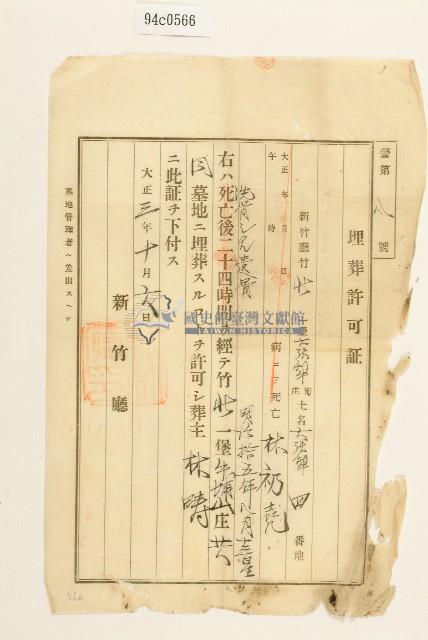 94c0566
警第八號
埋葬許可証
新竹廳竹北一堡六張犂庄土名六張犂四番地
林初堯
大正 年 月 日
午 時 病ニテ死亡
明治拾五年八月
洗骨シタ遺骨
右ハ死亡後二十四時間ヲ經テ竹北一堡牛埔山庄共
同墓地ニ埋葬スルコトヲ許可シ葬主林疇
ニ此証ヲ下付ス
大正三年十月六日
新竹廳
墓地管理者ヘ差出スヘシ
國史館臺灣文獻館
TAIWAN HISTORICA